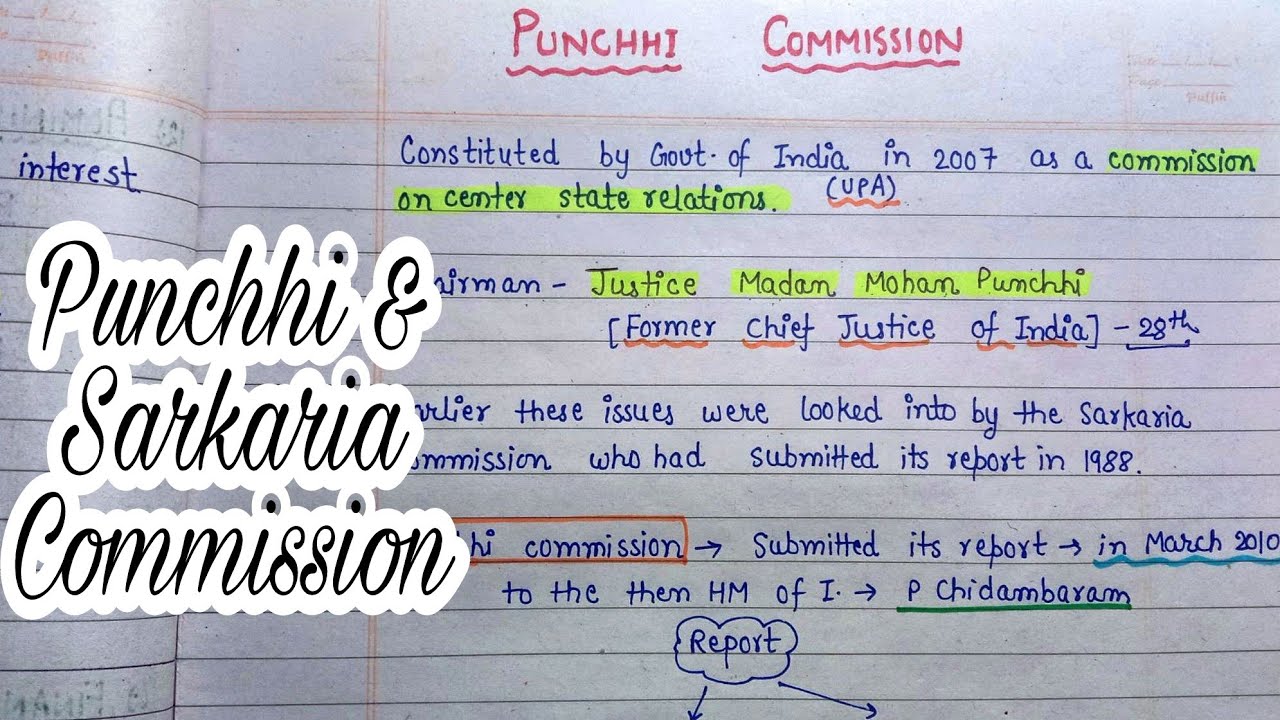 PUNCHHI COMMISSION
interest
Constituted by Govt. of India in 2007 as a commission
on center state relations. (UPA)
airman - Justice Madan Mohan Punchhi
[Former Chief Justice of India] - 28th
rlier these issues were looked into by the Sarkaria
ommission who had submitted its report in 1988.
hi commission → Submitted its report → in March 2010
to the them HM of I. → P Chidambaram
Report
Punchhi &
Sarkaria
Commission